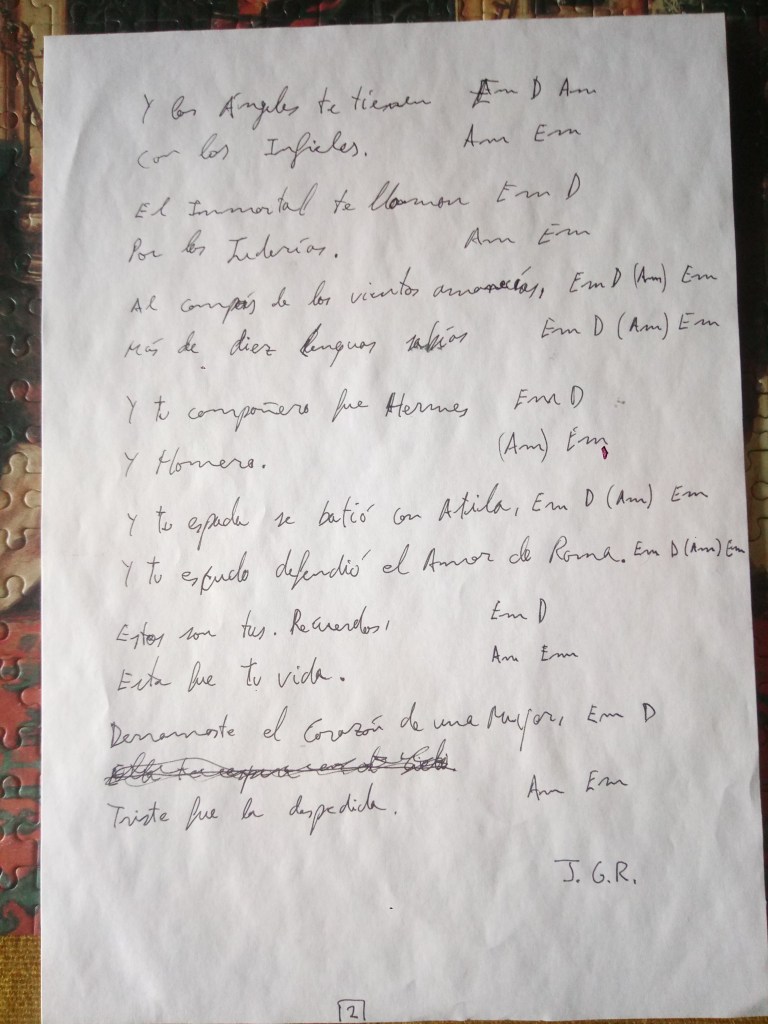 Y los Ángeles te tienen Em D Am
Con los Infieles. Am Em
El Inmortal te llaman Em D
Por las Juderías. Am Em
Al compás de los vientos Em D (Am) Em
Más de diez lenguas sabías Em D (Am) Em
Y tu compañero fue Hermes Em D
Y Homero. (Am) Em
Y tu espada se batió con Atila, Em D (Am) Em
Y tu escudo defendió el Amor de Roma. Em D (Am) Em
Estos son tus. Recuerdos, Em D
Esta fue tu vida. Am Em
Derramaste el Corazón de una Mujer, Em D
Triste fue la despedida. Am Em
J. G. R.
2